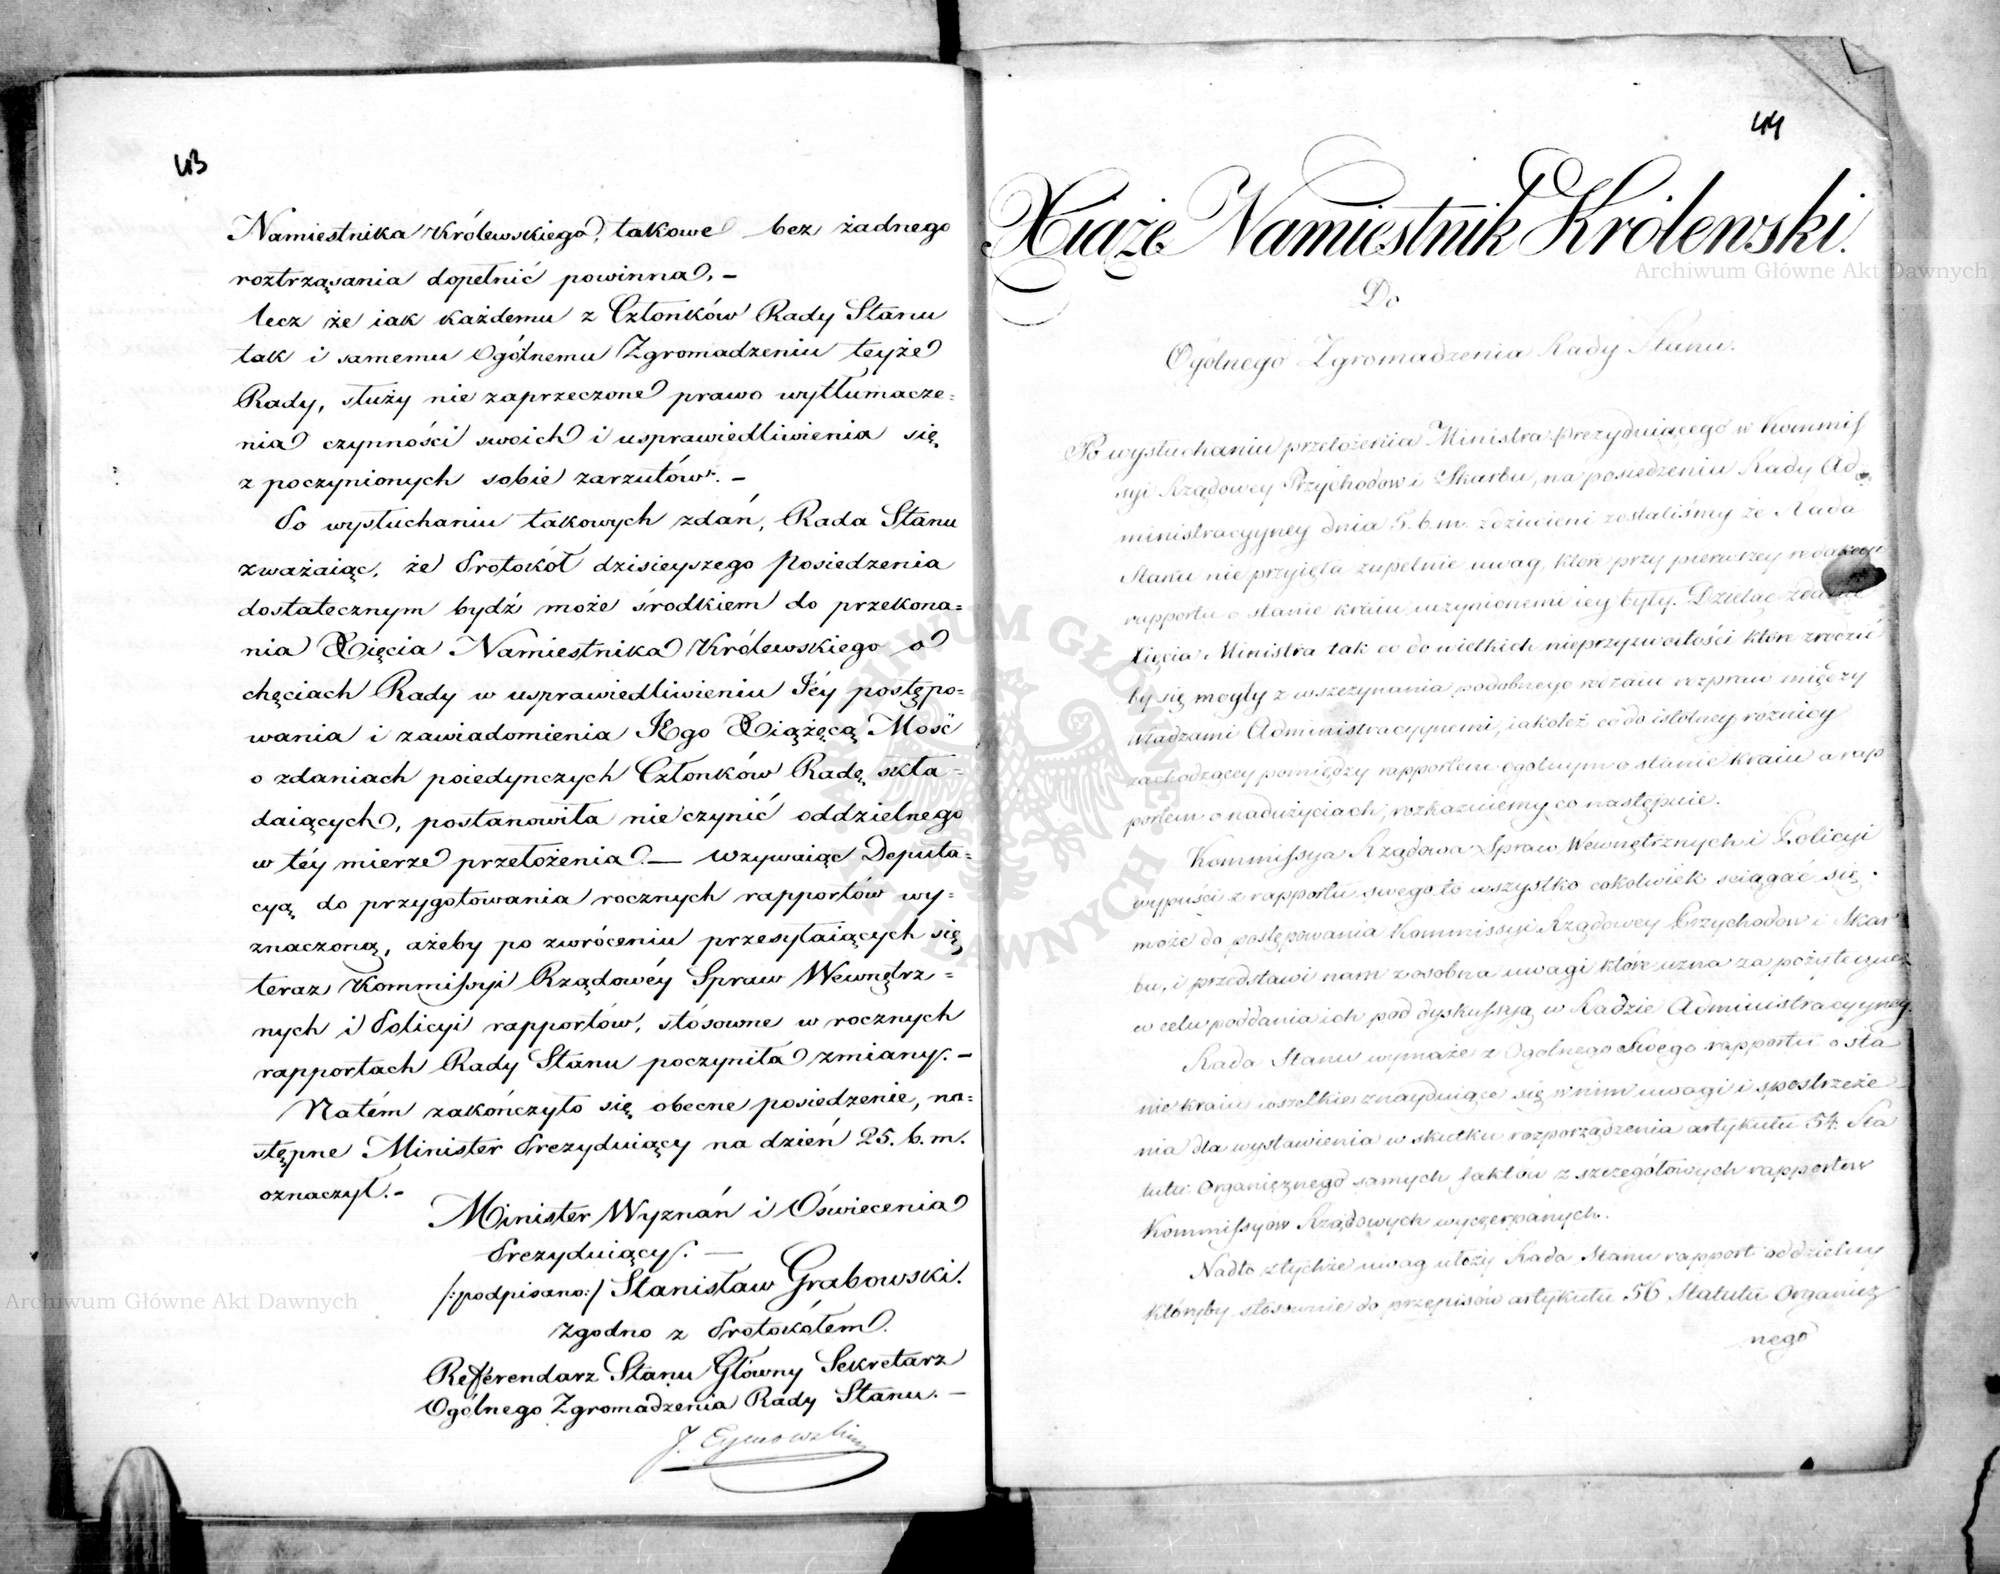 43
Namiestnika Królewskiego, takowe bez żadnego
roztrząsania dopełnić powinna. –
lecz że iak każdemu z Członków Rady Stanu
tak i samemu Ogólnemu Zgromadzeniu teyże
Rady, służy nie zaprzeczone prawo wytłumacze=
nia czynności swoich i usprawiedliwienia się
z poczynionych sobie zarzutów. –
Po wysłuchaniu takowych zdań, Rada Stanu
zważaiąc, że Protokół dzisieyszego Posiedzenia
dostatecznym bydź może środkiem do przekona=
nia Xięcia Namiestnika Królewskiego o
chęciach Rady w usprawiedliwieniu Iéy postępo=
wania i zawiadomienia JEgo Xiążęcą Mość
o zdaniach poiedynczych Członków Radę skła=
daiących, postanowiła nie czynić oddzielnego
w téy mierze przełożenia. — wzywaiąc Deputa=
cyą do przygotowania rocznych rapportów wy=
znaczoną, ażeby po zwróceniu przesyłaiących się
teraz Kommissyi Rządowéy Spraw Wewnętrz=
nych i Policyi rapportów, stósowne w rocznych
rapportach Rady Stanu poczyniła zmiany. –
Natém zakończyło się obecne posiedzenie, na=
stępne Minister Prezyduiący na dzień 25. b. m.
oznaczył. –
Minister Wyznań i Oświecenia
Prezyduiący. —
/:podpisano:/ Stanisław Grabowski.
Zgodno z Protokółem.
Referendarz Stanu Główny Sekretarz
Ogólnego Zgromadzenia Rady Stanu. –
J.
44
Xiąże Namiestnik Królewski.
Do
Ogólnego Zgromadzenia Rady Stanu.
Po wysłuchaniu przełożenia Ministra prezyduiącego w Kommis
syi Rządowey Przychodow i Skarbu, na posiedzeniu Rady Ad=
ministracyyney dnia 5. b. m. zdziwieni zostaliśmy że Rada
Stanu nie przyięła zupełnie uwag, które przy pierwszey redakcyi
rapportu o stanie kraiu uczynionemi iey były. Dzieląc zdanie
Xięcia Ministra tak co do wielkich nieprzyzwoitości które zrodzić
by się mogły z wszczynania podobnego rodzaiu rozpraw między
władzami Administracyynemi, iakoteż co do istotney rożnicy
zachodzącey pomiędzy rapportem ogolnym o stanie kraiu a rap
portem o nadużyciach, rozkazuiemy co następuie.
Kommissya Rządowa Spraw Wewnętrznych i Policyi
wypuści z rapportu swego to wszystko cokolwiek sciągać się
może do postępowania Kommissyi Rządowey Przychodow i Skar
bu, i przedstawi nam z osobna uwagi które uzna za pożyteczne
w celu poddania ich pod dyskussyą w Radzie Administracyyney.
Rada Stanu wymaże z Ogolnego Swego rapportu o sta
nie kraiu wszelkie znayduiące się w nim uwagi i spostrzeże
nia dla wystawienia w skutku rozporządzenia artykułu 54. Sta
tutu Organicznego samych faktów z szczegółowych rapportow
Kommissyów Rządowych wyczerpanych.
Nadto z tychże uwag ułoży Rada Stanu rapport oddzielny
któryby stosownie do przepisów artykułu 56 Statutu Organicz
nego
Archiwum Główne Akt Dawnych
Archiwum Główne Akt Dawnych
ARCHIWUM GŁÓWNE AKT DAWNYCH